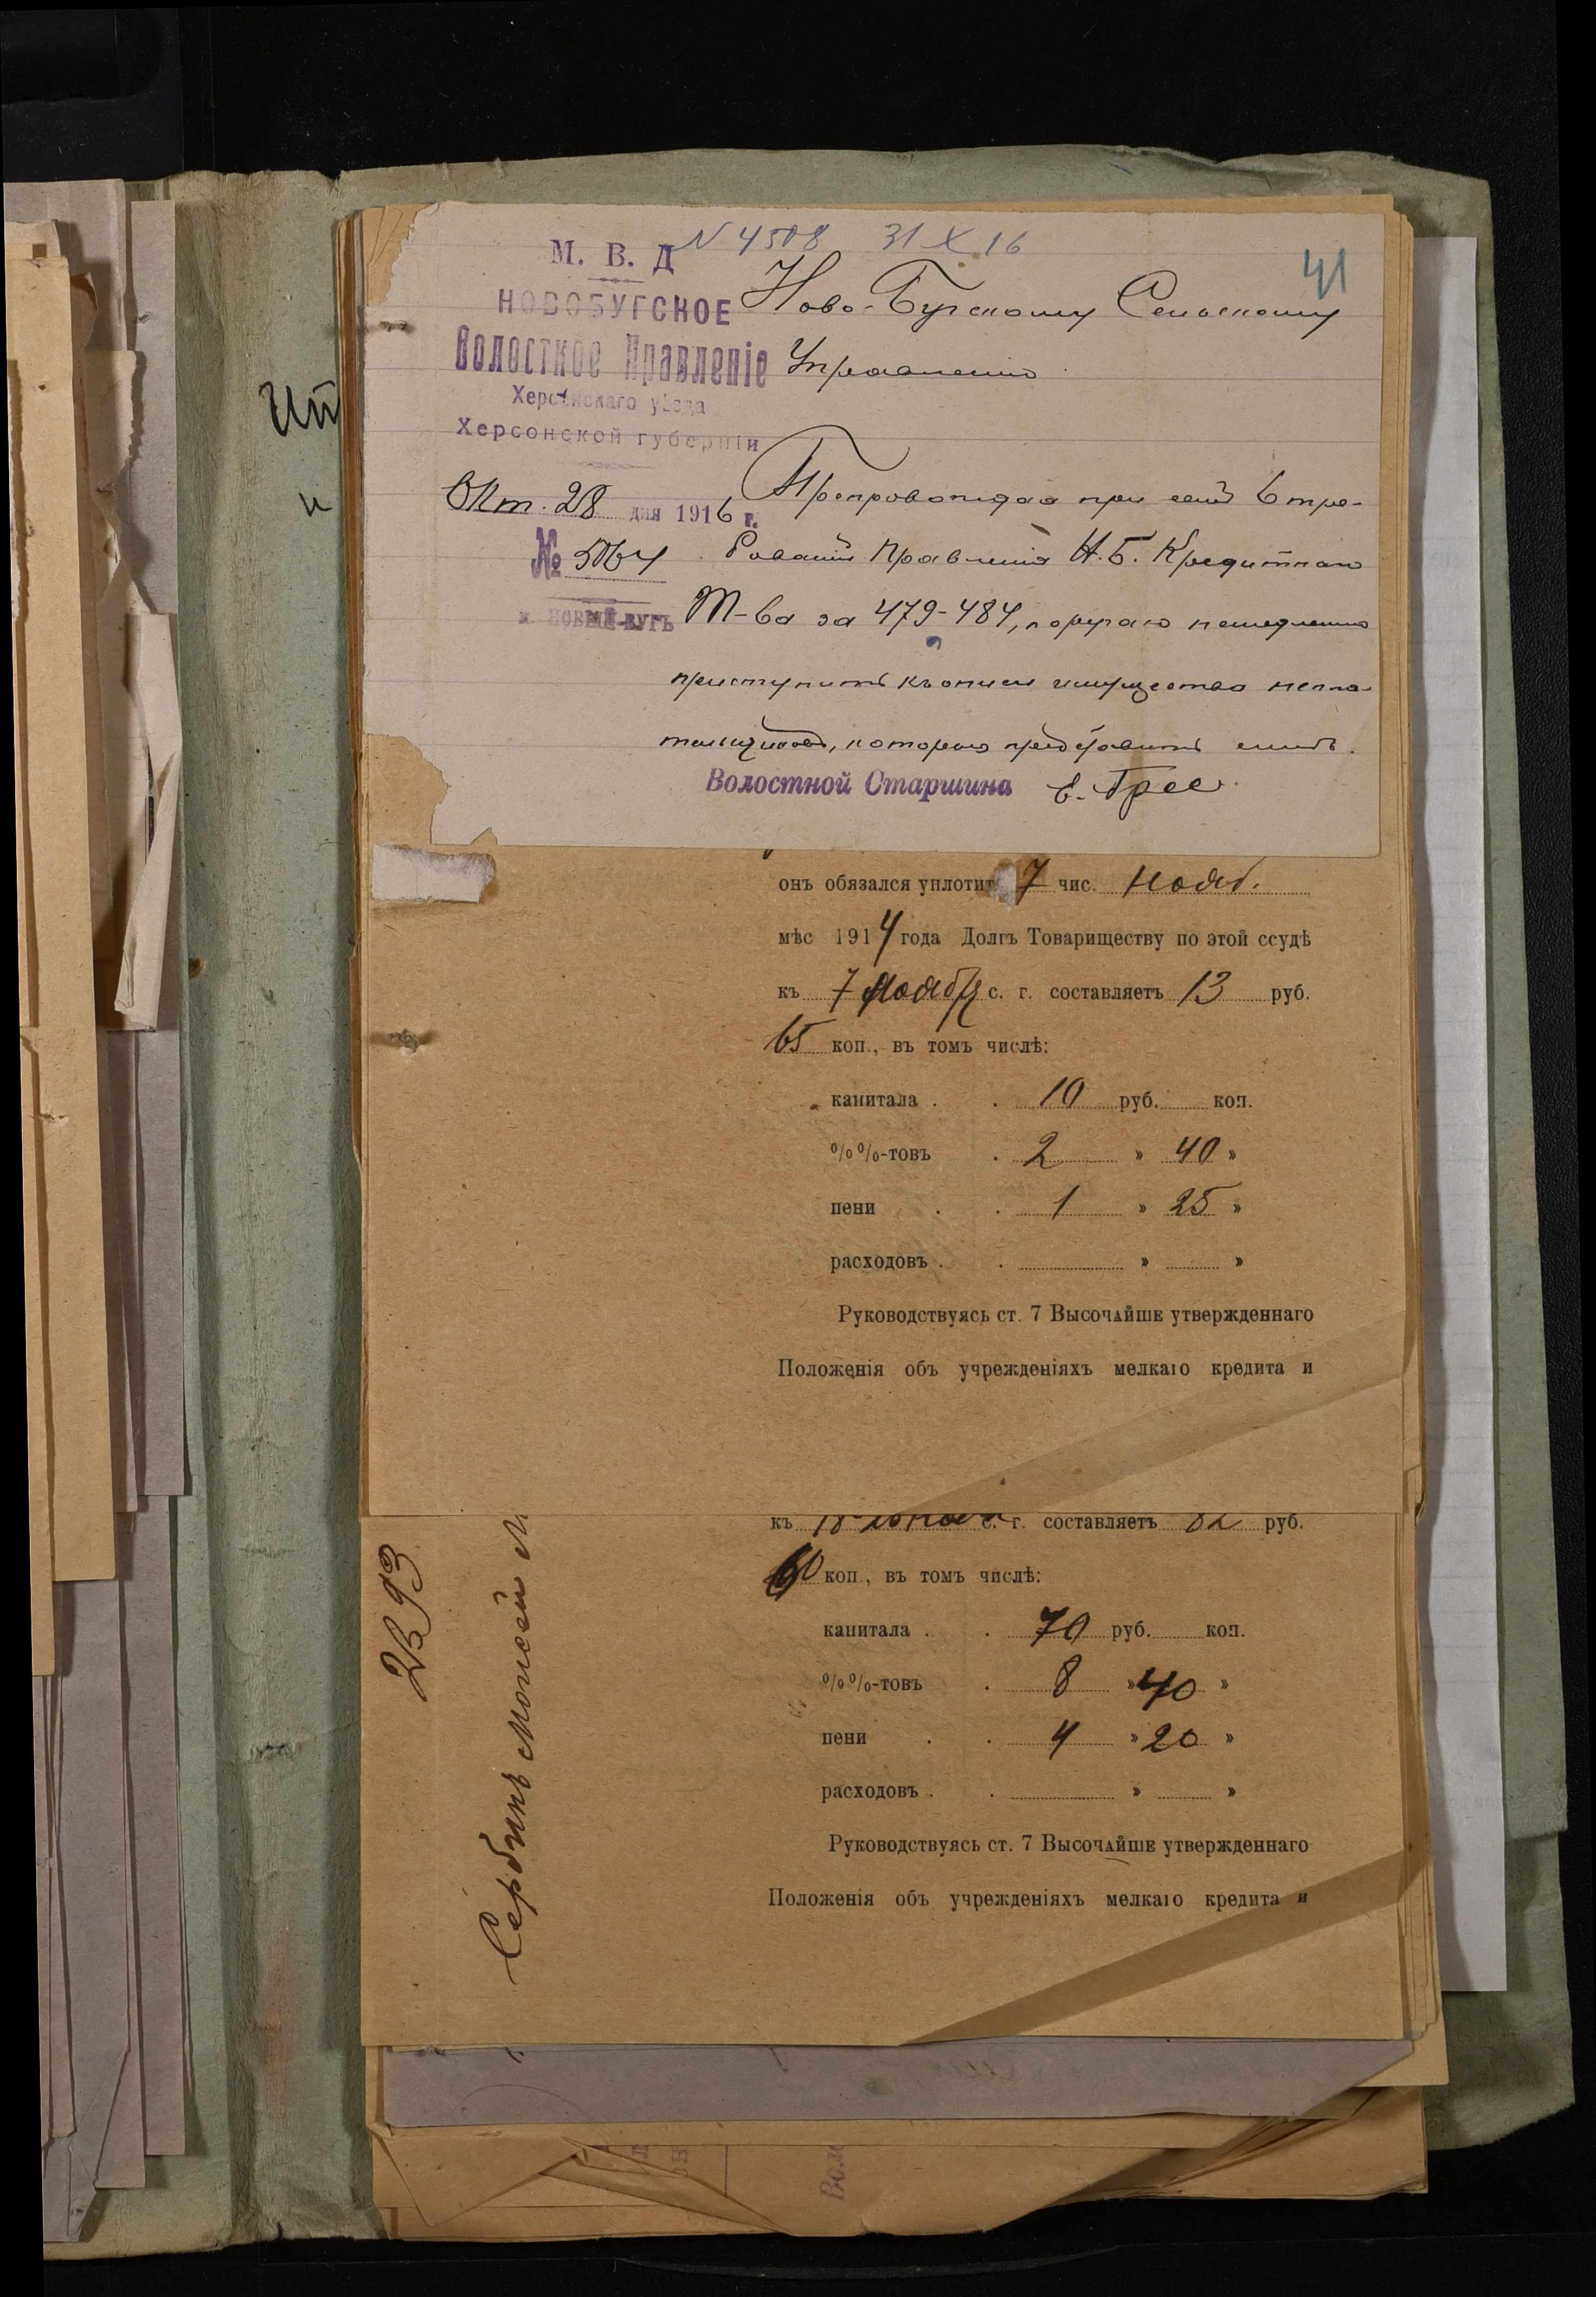 N 4508 31 X 16
41
М. В. Д
НОВОБУГСКОЕ
Волостное Правленіе
Херсонскаго уѣзда
Херсонской губерніи
Окт. 28 дня 1916 г.
№ 5064
м. НОВЫЙ-БУГЪ
Ново-Бугскому Сельскому
Управленію
Препровождая при семъ 6 тре-
бованій Правленія Н.Б. Кредитнаго
Т-ва за 479-484, поручаю немедленно
приступить къ описи имущества непла-
тельщиковъ, которую представить мнѣ.
Волостной Старшина
онъ обязался уплотит 7 чис. Нояб.
мѣс 1914 года Долгъ Товариществу по этой ссудѣ
къ 7 Ноября с. г. составляетъ 13 руб.
65 коп., въ томъ числѣ:
капитала . . 10 руб. коп.
%%-товъ . 2 » 40 »
пени . . 1 » 25 »
расходовъ . . » »
Руководствуясь ст. 7 Высочайше утвержденнаго
Положенія объ учрежденіяхъ мелкаго кредита и
къ 18 с. г. составляетъ 82 руб.
60 коп., въ томъ числѣ:
капитала . . 70 руб. коп.
%%-товъ . 8 » 40 »
пени . . 4 » 20 »
расходовъ . . » »
Руководствуясь ст. 7 Высочайше утвержденнаго
Положенія объ учрежденіяхъ мелкаго кредита и
Сербинъ Моисей М.
Ит
и